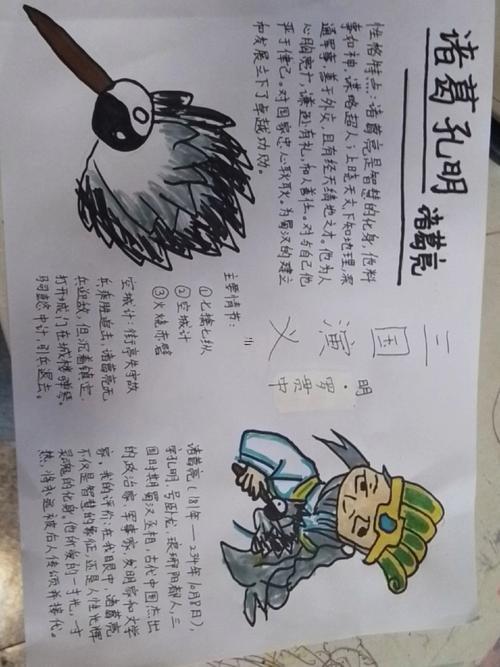 诸葛孔明
诸葛亮
性格特点:诸葛亮是智慧的化身,他料
事如神,谋略超人;上晓天文下知地理,
通军事善于外交,且有经天纬地之才。他为人
心胸宽广,谦逊有礼,知人善任。对与自己他
严于律己。对国家忠心耿耿。为蜀汉的建立
和发展立下了卓越功劲。
三国
演义
明·罗贯中
主要情节:
①七擒七纵
②空城计
③火烧赤壁
空城计:街亭失守故
兵乘胜追击,诸葛亮无
兵迎敌,但沉着镇定,
打开城门在城楼弹琴。
司马懿中计,引兵退去。
诸葛亮(181年—234年10月8日),
字孔明,号卧龙,琅琊阳都人,三
国时期蜀汉丞相,古代中国杰出
的政治家、军事家、发明家和文学
家。我的评价:在我眼中,诸葛亮
不仅是智慧的象征,还是人性光辉
灵魂的化身。他所爱的一寸地,一寸
然,将永远被后人传颂并接代。